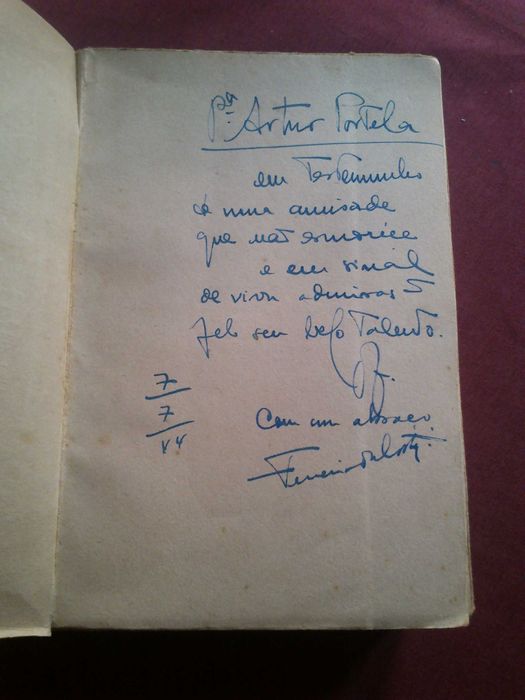 Pª Artur Portela
em testemunho
de uma amisade
que não esmorece
e em sinal
de viva admiração
pelo seu belo talento.
Com um abraço
Ferreira da Costa
7
7